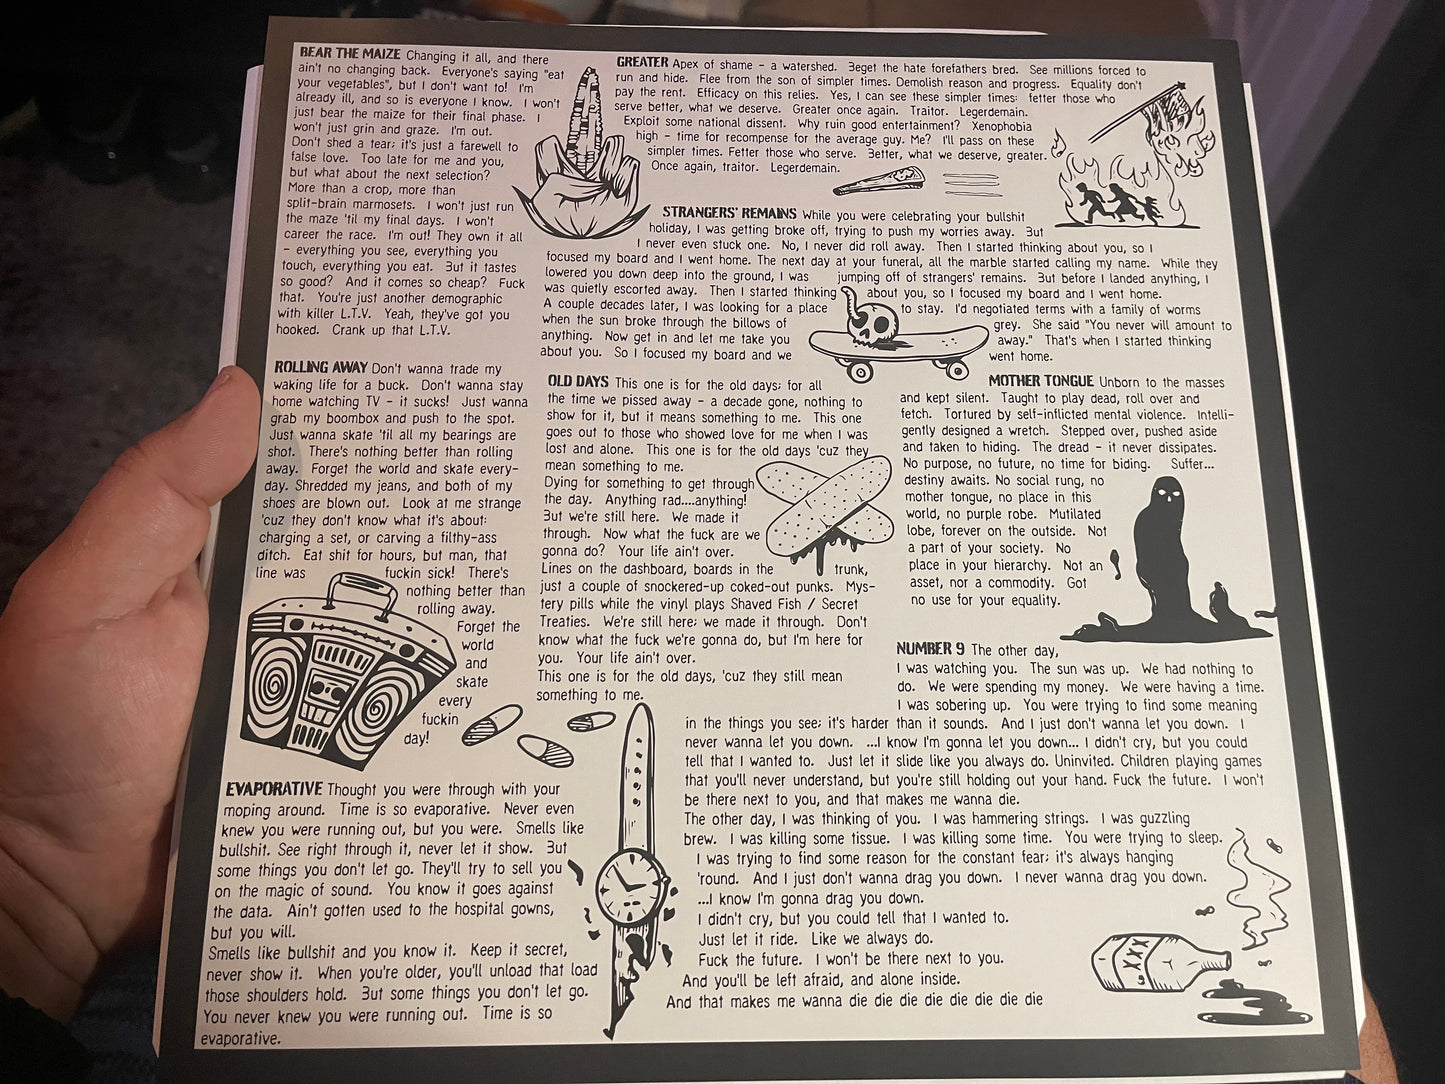 BEAR THE MAIZE Changing it all, and there
ain't no changing back. Everyone's saying "eat
your vegetables", but I don't want to! I'm
already ill, and so is everyone I know. I won't
just bear the maize for their final phase. I
won't just grin and graze. I'm out.
Don't shed a tear; it's just a farewell to
false love. Too late for me and you,
but what about the next selection?
More than a crop, more than
split-brain marmosets. I won't just run
the maze 'til my final days. I won't
career the race. I'm out! They own it all
- everything you see, everything you
touch, everything you eat. But it tastes
so good? And it comes so cheap? Fuck
that. You're just another demographic
with killer L.T.V. Yeah, they've got you
hooked. Crank up that L.T.V.
GREATER Apex of shame - a watershed. Beget the hate forefathers bred. See millions forced to
run and hide. Flee from the son of simpler times. Demolish reason and progress. Equality don't
pay the rent. Efficacy on this relies. Yes, I can see these simpler times: fetter those who
serve better, what we deserve. Greater once again. Traitor. Legerdemain.
Exploit some national dissent. Why ruin good entertainment? Xenophobia
high - time for recompense for the average guy. Me? I'll pass on these
simpler times. Fetter those who serve. Better, what we deserve, greater.
Once again, traitor. Legerdemain.
STRANGERS' REMAINS While you were celebrating your bullshit
holiday, I was getting broke off, trying to push my worries away. But
I never even stuck one. No, I never did roll away. Then I started thinking about you, so I
focused my board and I went home. The next day at your funeral, all the marble started calling my name. While they
lowered you down deep into the ground, I was jumping off of strangers' remains. But before I landed anything, I
was quietly escorted away. Then I started thinking about you, so I focused my board and I went home.
A couple decades later, I was looking for a place to stay. I'd negotiated terms with a family of worms
when the sun broke through the billows of grey. She said "You never will amount to
anything. Now get in and let me take you away." That's when I started thinking
about you. So I focused my board and we went home.
ROLLING AWAY Don't wanna trade my
waking life for a buck. Don't wanna stay
home watching TV - it sucks! Just wanna
grab my boombox and push to the spot.
Just wanna skate 'til all my bearings are
shot. There's nothing better than rolling
away. Forget the world and skate every-
day. Shredded my jeans, and both of my
shoes are blown out. Look at me strange
'cuz they don't know what it's about:
charging a set, or carving a filthy-ass
ditch. Eat shit for hours, but man, that
line was fuckin sick! There's
nothing better than
rolling away.
Forget the
world
and
skate
every
fuckin
day!
OLD DAYS This one is for the old days; for all
the time we pissed away - a decade gone, nothing to
show for it, but it means something to me. This one
goes out to those who showed love for me when I was
lost and alone. This one is for the old days 'cuz they
mean something to me.
Dying for something to get through
the day. Anything rad....anything!
But we're still here. We made it
through. Now what the fuck are we
gonna do? Your life ain't over.
Lines on the dashboard, boards in the trunk,
just a couple of snockered-up coked-out punks. Mys-
tery pills while the vinyl plays Shaved Fish / Secret
Treaties. We're still here; we made it through. Don't
know what the fuck we're gonna do, but I'm here for
you. Your life ain't over.
This one is for the old days, 'cuz they still mean
something to me.
MOTHER TONGUE Unborn to the masses
and kept silent. Taught to play dead, roll over and
fetch. Tortured by self-inflicted mental violence. Intelli-
gently designed a wretch. Stepped over, pushed aside
and taken to hiding. The dread - it never dissipates.
No purpose, no future, no time for biding. Suffer...
destiny awaits. No social rung, no
mother tongue, no place in this
world, no purple robe. Mutilated
lobe, forever on the outside. Not
a part of your society. No
place in your hierarchy. Not an
asset, nor a commodity. Got
no use for your equality.
EVAPORATIVE Thought you were through with your
moping around. Time is so evaporative. Never even
knew you were running out, but you were. Smells like
bullshit. See right through it, never let it show. But
some things you don't let go. They'll try to sell you
on the magic of sound. You know it goes against
the data. Ain't gotten used to the hospital gowns,
but you will.
Smells like bullshit and you know it. Keep it secret,
never show it. When you're older, you'll unload that load
those shoulders hold. But some things you don't let go.
You never knew you were running out. Time is so
evaporative.
NUMBER 9 The other day,
I was watching you. The sun was up. We had nothing to
do. We were spending my money. We were having a time.
I was sobering up. You were trying to find some meaning
in the things you see; it's harder than it sounds. And I just don't wanna let you down. I
never wanna let you down. ...I know I'm gonna let you down... I didn't cry, but you could
tell that I wanted to. Just let it slide like you always do. Uninvited. Children playing games
that you'll never understand, but you're still holding out your hand. Fuck the future. I won't
be there next to you, and that makes me wanna die.
The other day, I was thinking of you. I was hammering strings. I was guzzling
brew. I was killing some tissue. I was killing some time. You were trying to sleep.
I was trying to find some reason for the constant fear; it's always hanging
'round. And I just don't wanna drag you down. I never wanna drag you down.
...I know I'm gonna drag you down.
I didn't cry, but you could tell that I wanted to.
Just let it ride. Like we always do.
Fuck the future. I won't be there next to you.
And you'll be left afraid, and alone inside.
And that makes me wanna die die die die die die die die
XXX